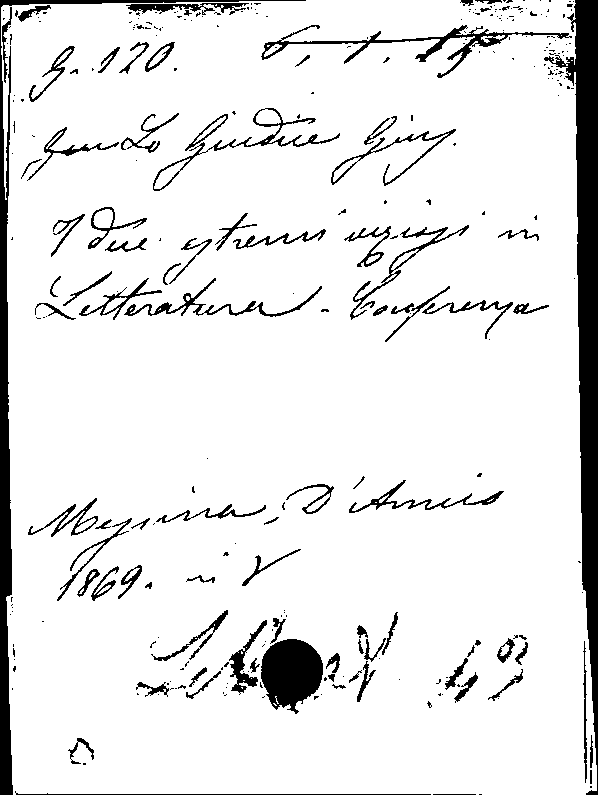 G. 120. 6, 1. 15
Lo Giudice Gius.
I due estremi viziosi in
Letteratura - Conferenza
Messina, D'Amico
1869. in 8
43